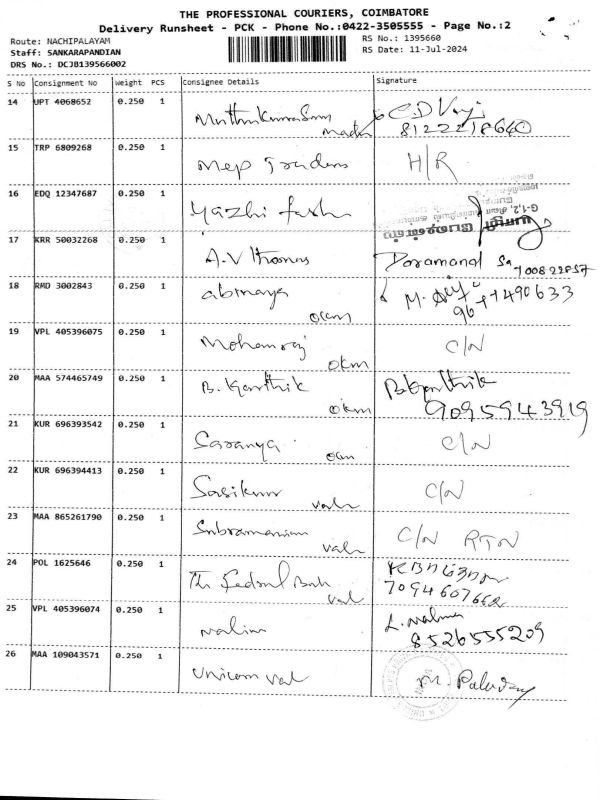 THE PROFESSIONAL COURIERS, COIMBATORE
Delivery Runsheet - PCK - Phone No.:0422-3505555 - Page No.:2
Route: NACHIPALAYAM
RS No.: 1395660
Staff: SANKARAPANDIAN
RS Date: 11-Jul-2024
DRS No.: DCJB139566002
S No Consignment No Weight PCS Consignee Details Signature
14 UPT 4068652 0.250 1
8122218640
15 TRP 6809268 0.250 1 Mep Traders H/R
16 EDQ 12347687 0.250 1 Yazhi
G-1,2,
17 KRR 50032268 0.250 1 A.V Thomas
18 RMD 3002843 0.250 1 abinaya okm M.
19 VPL 405396075 0.250 1 Mohanraj okm C/N
20 MAA 574465749 0.250 1 B. Karthik okm B. Karthik
9095943919
21 KUR 696393542 0.250 1 Saranya okm C/N
22 KUR 696394413 0.250 1 Sasikumar valu C/N
23 MAA 865261790 0.250 1 Subramanium valu C/N RTN
24 POL 1625646 0.250 1 The Federal Bank val
7094607662
25 VPL 405396074 0.250 1 Nalini
8526555209
26 MAA 109043571 0.250 1 Unicorn val M.